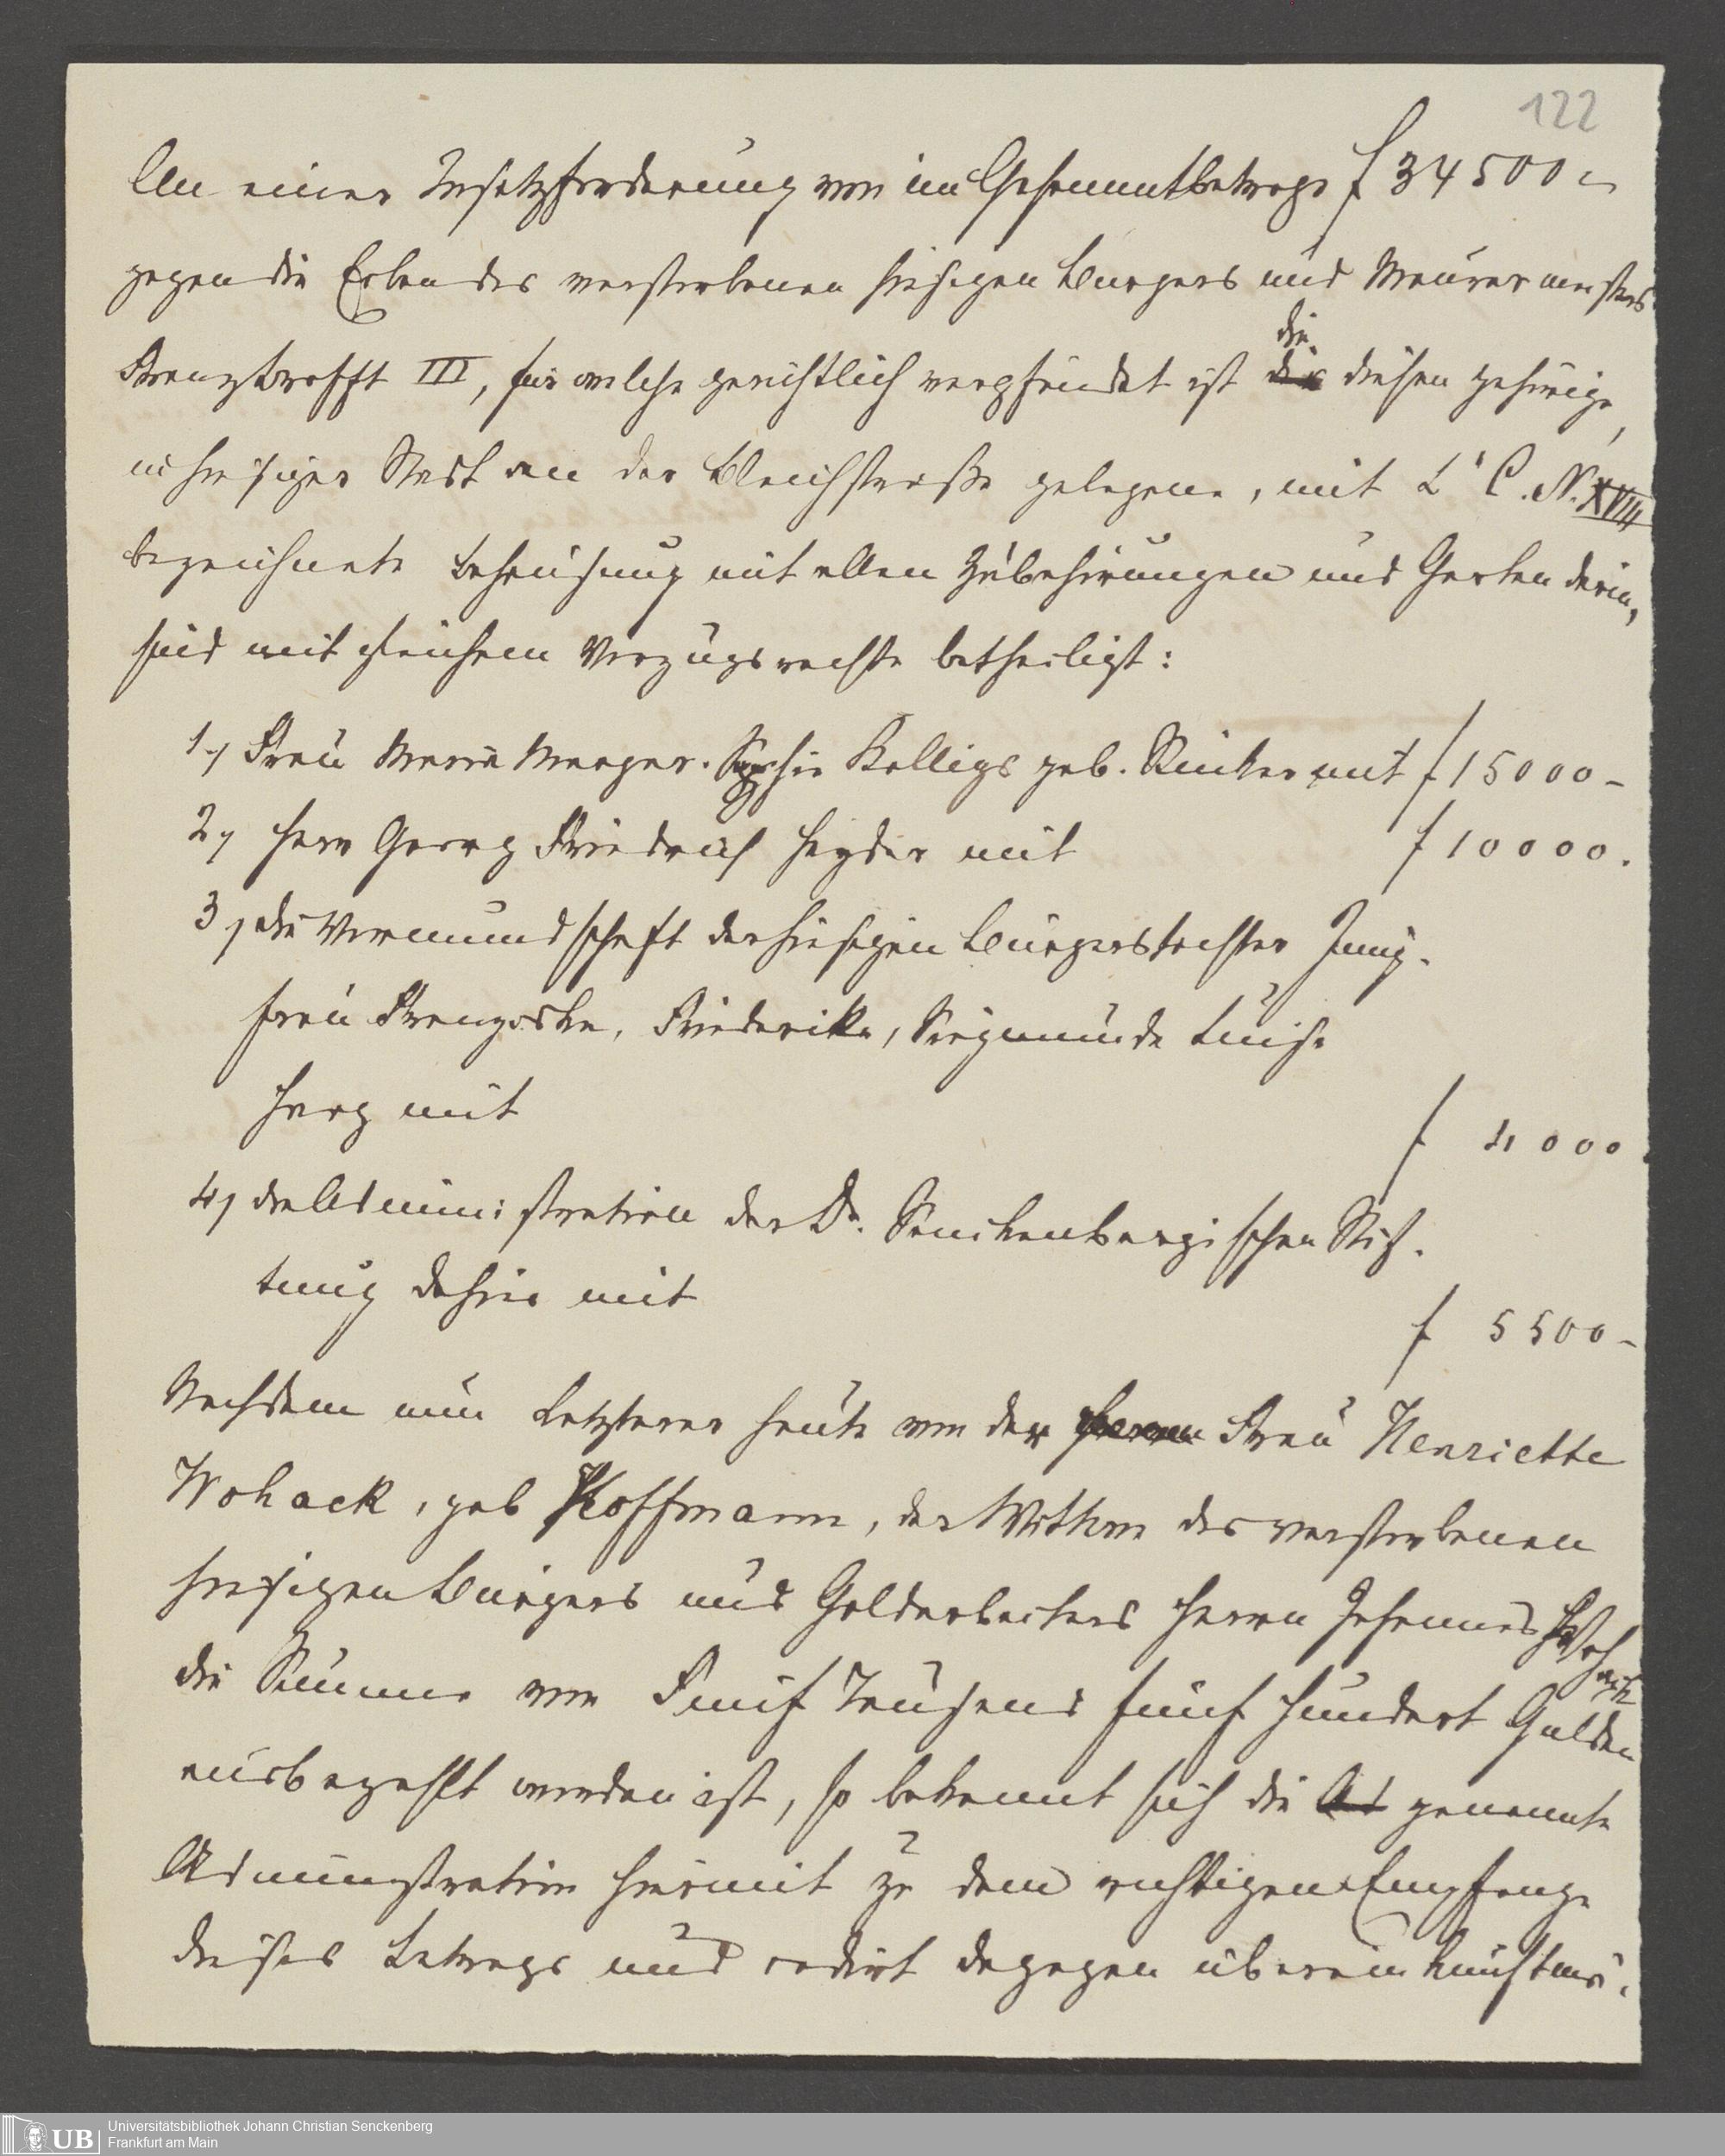 122
An einer Insatzforderung von im Gesammtbetrage f 34500 –
gegen die Erben des verstorbenen hiesigen Bürgers und Maurermeisters
III, für welche gerichtlich verpfändet ist die
der diesen gehörige,
in hiesiger Stadt an der Bleichstraße gelegene, mit Lt C. N. XVIII
bezeichnete Behausung mit allen Zubehörungen und Garten darin,
sind mit gleichem Vorzugsrechte betheiligt:
1.) Frau Maria Margar. Sophie Kolligs geb. mit f 15000 –
2) Herr Georg Friedrich Heyder mit f 10000.
3) die Vormundschaft der hiesigen Bürgerstochter Jung-
frau Franziska, Friederike, Sigmunde Luise
Herz mit f 4000.
4) die Administration der Dr. Senckenbergischen Stif-
tung dahier mit f 5500 –
Nachdem nun Letzterer heute von der Herrn Frau Henriette
Wohack, geb Hoffmann, der Wittwe des verstorbenen
hiesigen Bürgers und Goldarbeiters Herrn Johannes Wohack
die Summe von Fünf Tausend fünf hundert Gulden
ausbezahlt worden ist, so bekennt sich die Ad genannte
Administration hiermit zu dem richtigen Empfange
dieses Betrags und cedirt dagegen übereinkunftmä-
UB
Universitätsbibliothek Johann Christian Senckenberg
Frankfurt am Main